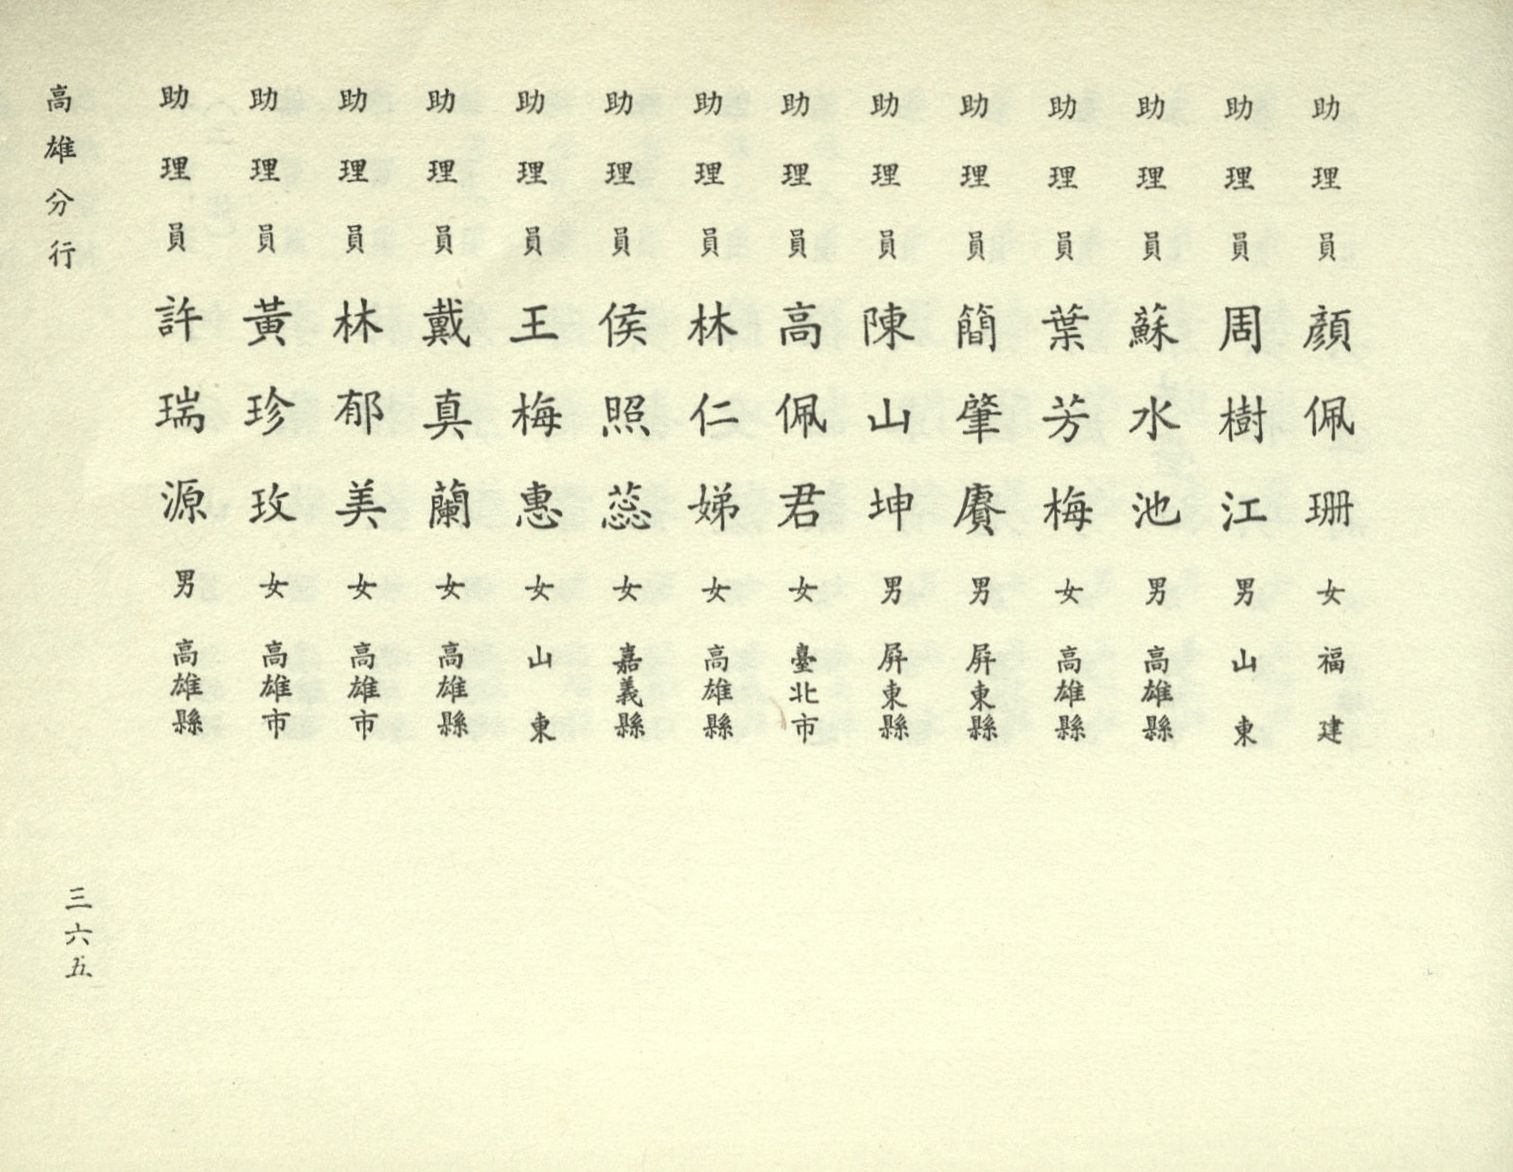 助理員 顏佩珊 女 福建
助理員 周樹江 男 山東
助理員 蘇水池 男 高雄縣
助理員 葉芳梅 女 高雄縣
助理員 簡肇賡 男 屏東縣
助理員 陳山坤 男 屏東縣
助理員 高佩君 女 臺北市
助理員 林仁娣 女 高雄縣
助理員 侯照蕊 女 嘉義縣
助理員 王梅惠 女 山東
助理員 戴真蘭 女 高雄縣
助理員 林郁美 女 高雄市
助理員 黃珍玫 女 高雄市
助理員 許瑞源 男 高雄縣
高雄分行
三六五